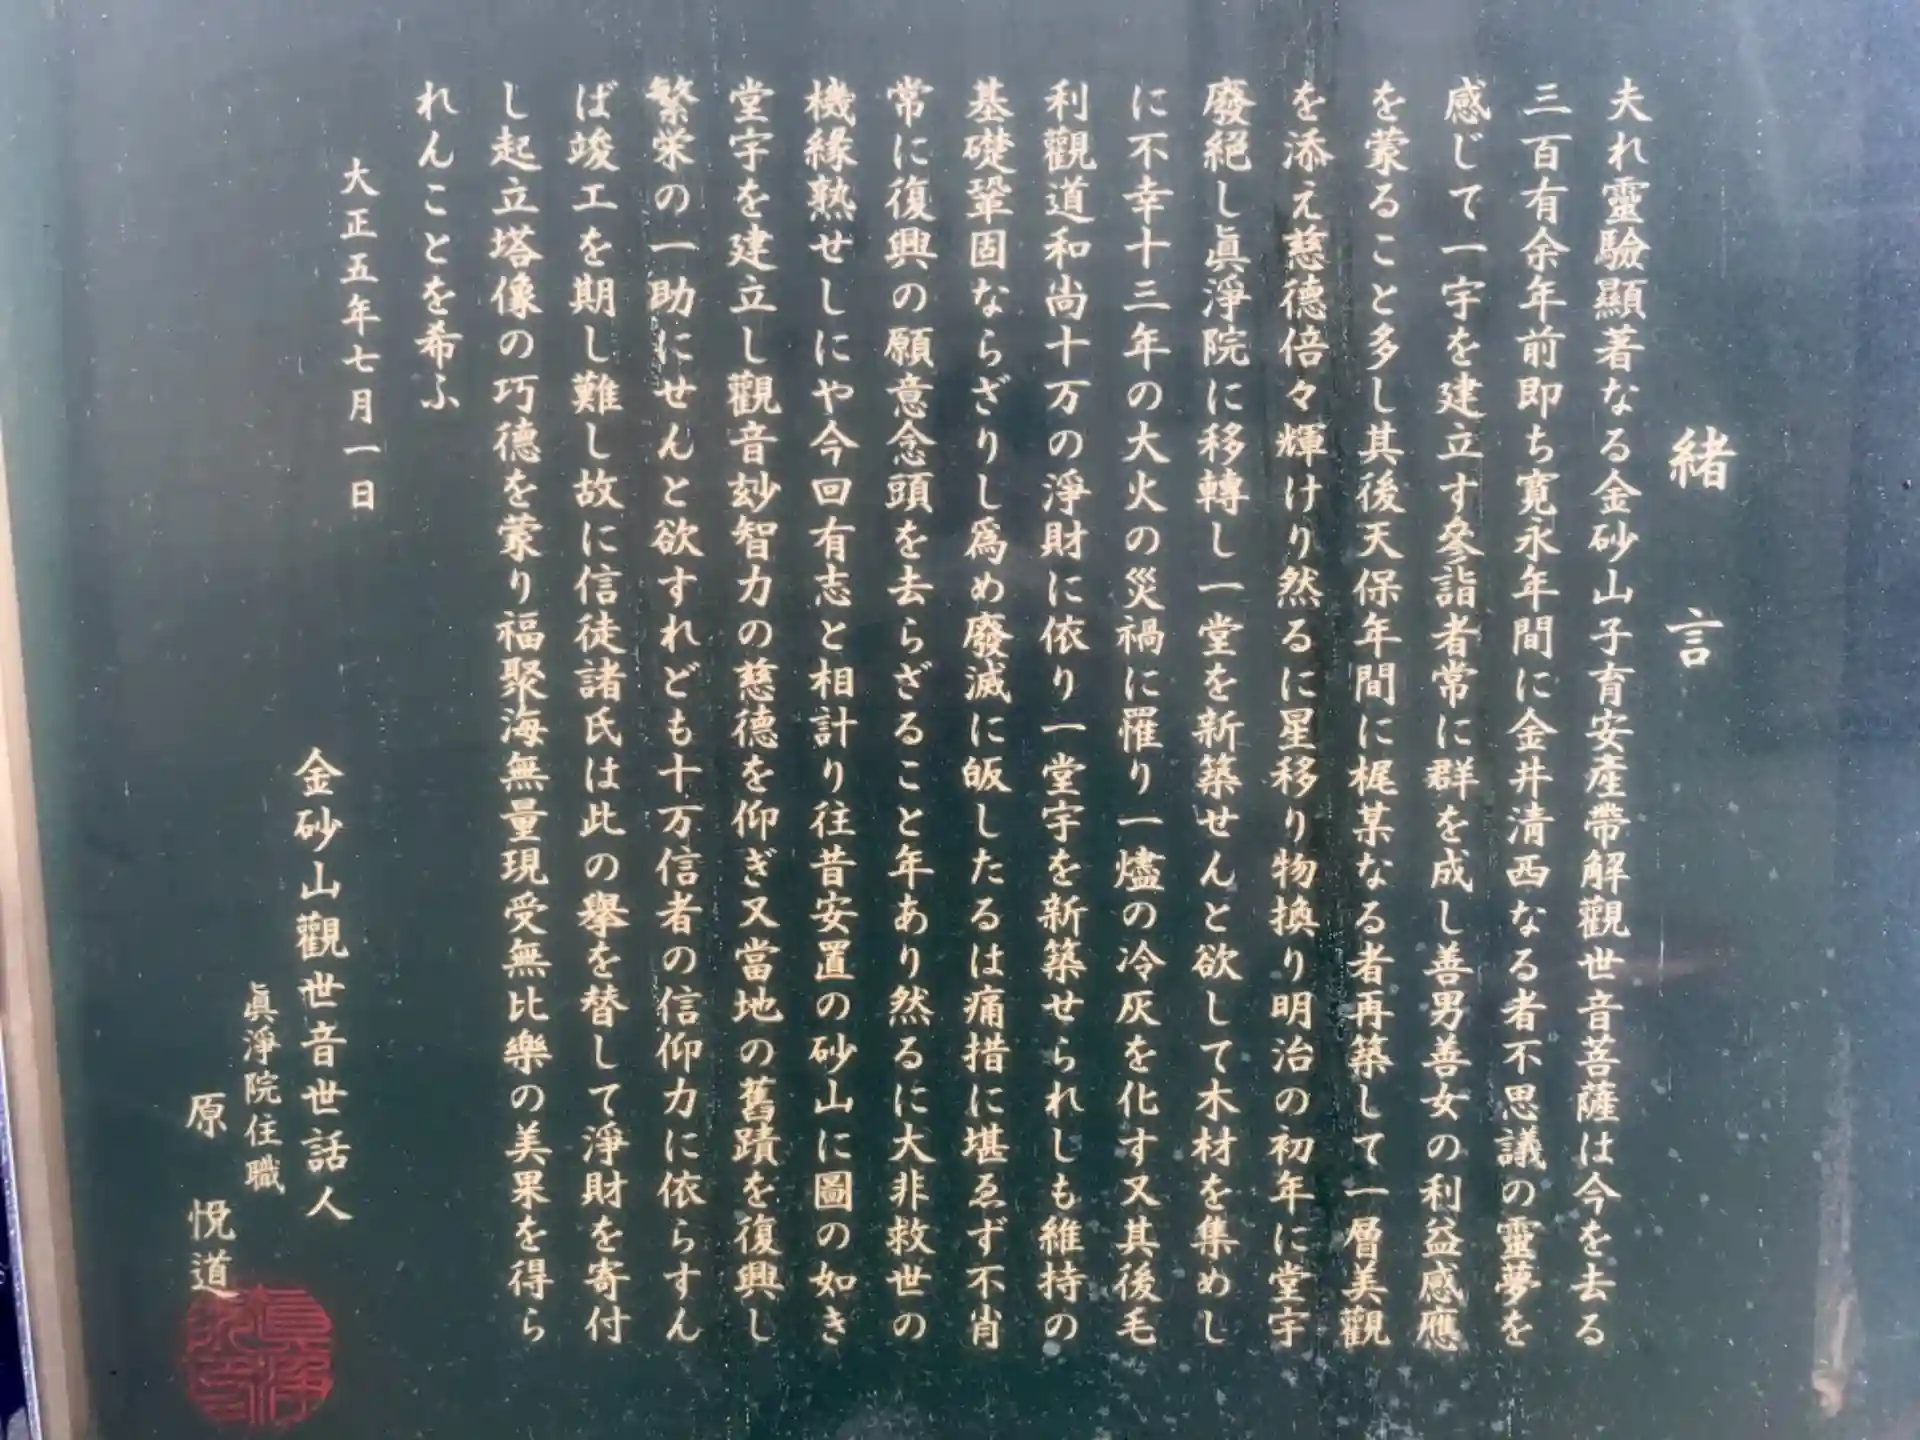 緒言
夫れ靈驗顯著なる金砂山子育安產帶解觀世音菩薩は今を去る
三百有余年前即ち寛永年間に金井清西なる者不思議の靈夢を
感じて一宇を建立す參詣者常に群を成し善男善女の利益感應
を蒙ること多し其後天保年間に梶某なる者再築して一層美觀
を添え慈德倍々輝けり然るに星移り物換り明治の初年に堂宇
廢絕し眞淨院に移轉し一堂を新築せんと欲して木材を集めし
に不幸十三年の大火の災禍に罹り一燼の冷灰を化す又其後毛
利觀道和尚十万の淨財に依り一堂宇を新築せられしも維持の
基礎鞏固ならざりし爲め廢滅に皈したるは痛措に堪ゑず不肖
常に復興の願意念頭を去らざること年あり然るに大非救世の
機緣熟せしにや今回有志と相計り往昔安置の砂山に圖の如き
堂宇を建立し觀音妙智力の慈德を仰ぎ又當地の舊蹟を復興し
繁栄の一助にせんと欲すれども十万信者の信仰力に依らすん
ば竣工を期し難し故に信徒諸氏は此の擧を替して淨財を寄付
し起立塔像の巧德を蒙り福聚海無量現受無比樂の美果を得ら
れんことを希ふ
大正五年七月一日
金砂山觀世音世話人
眞淨院住職
原 悅道